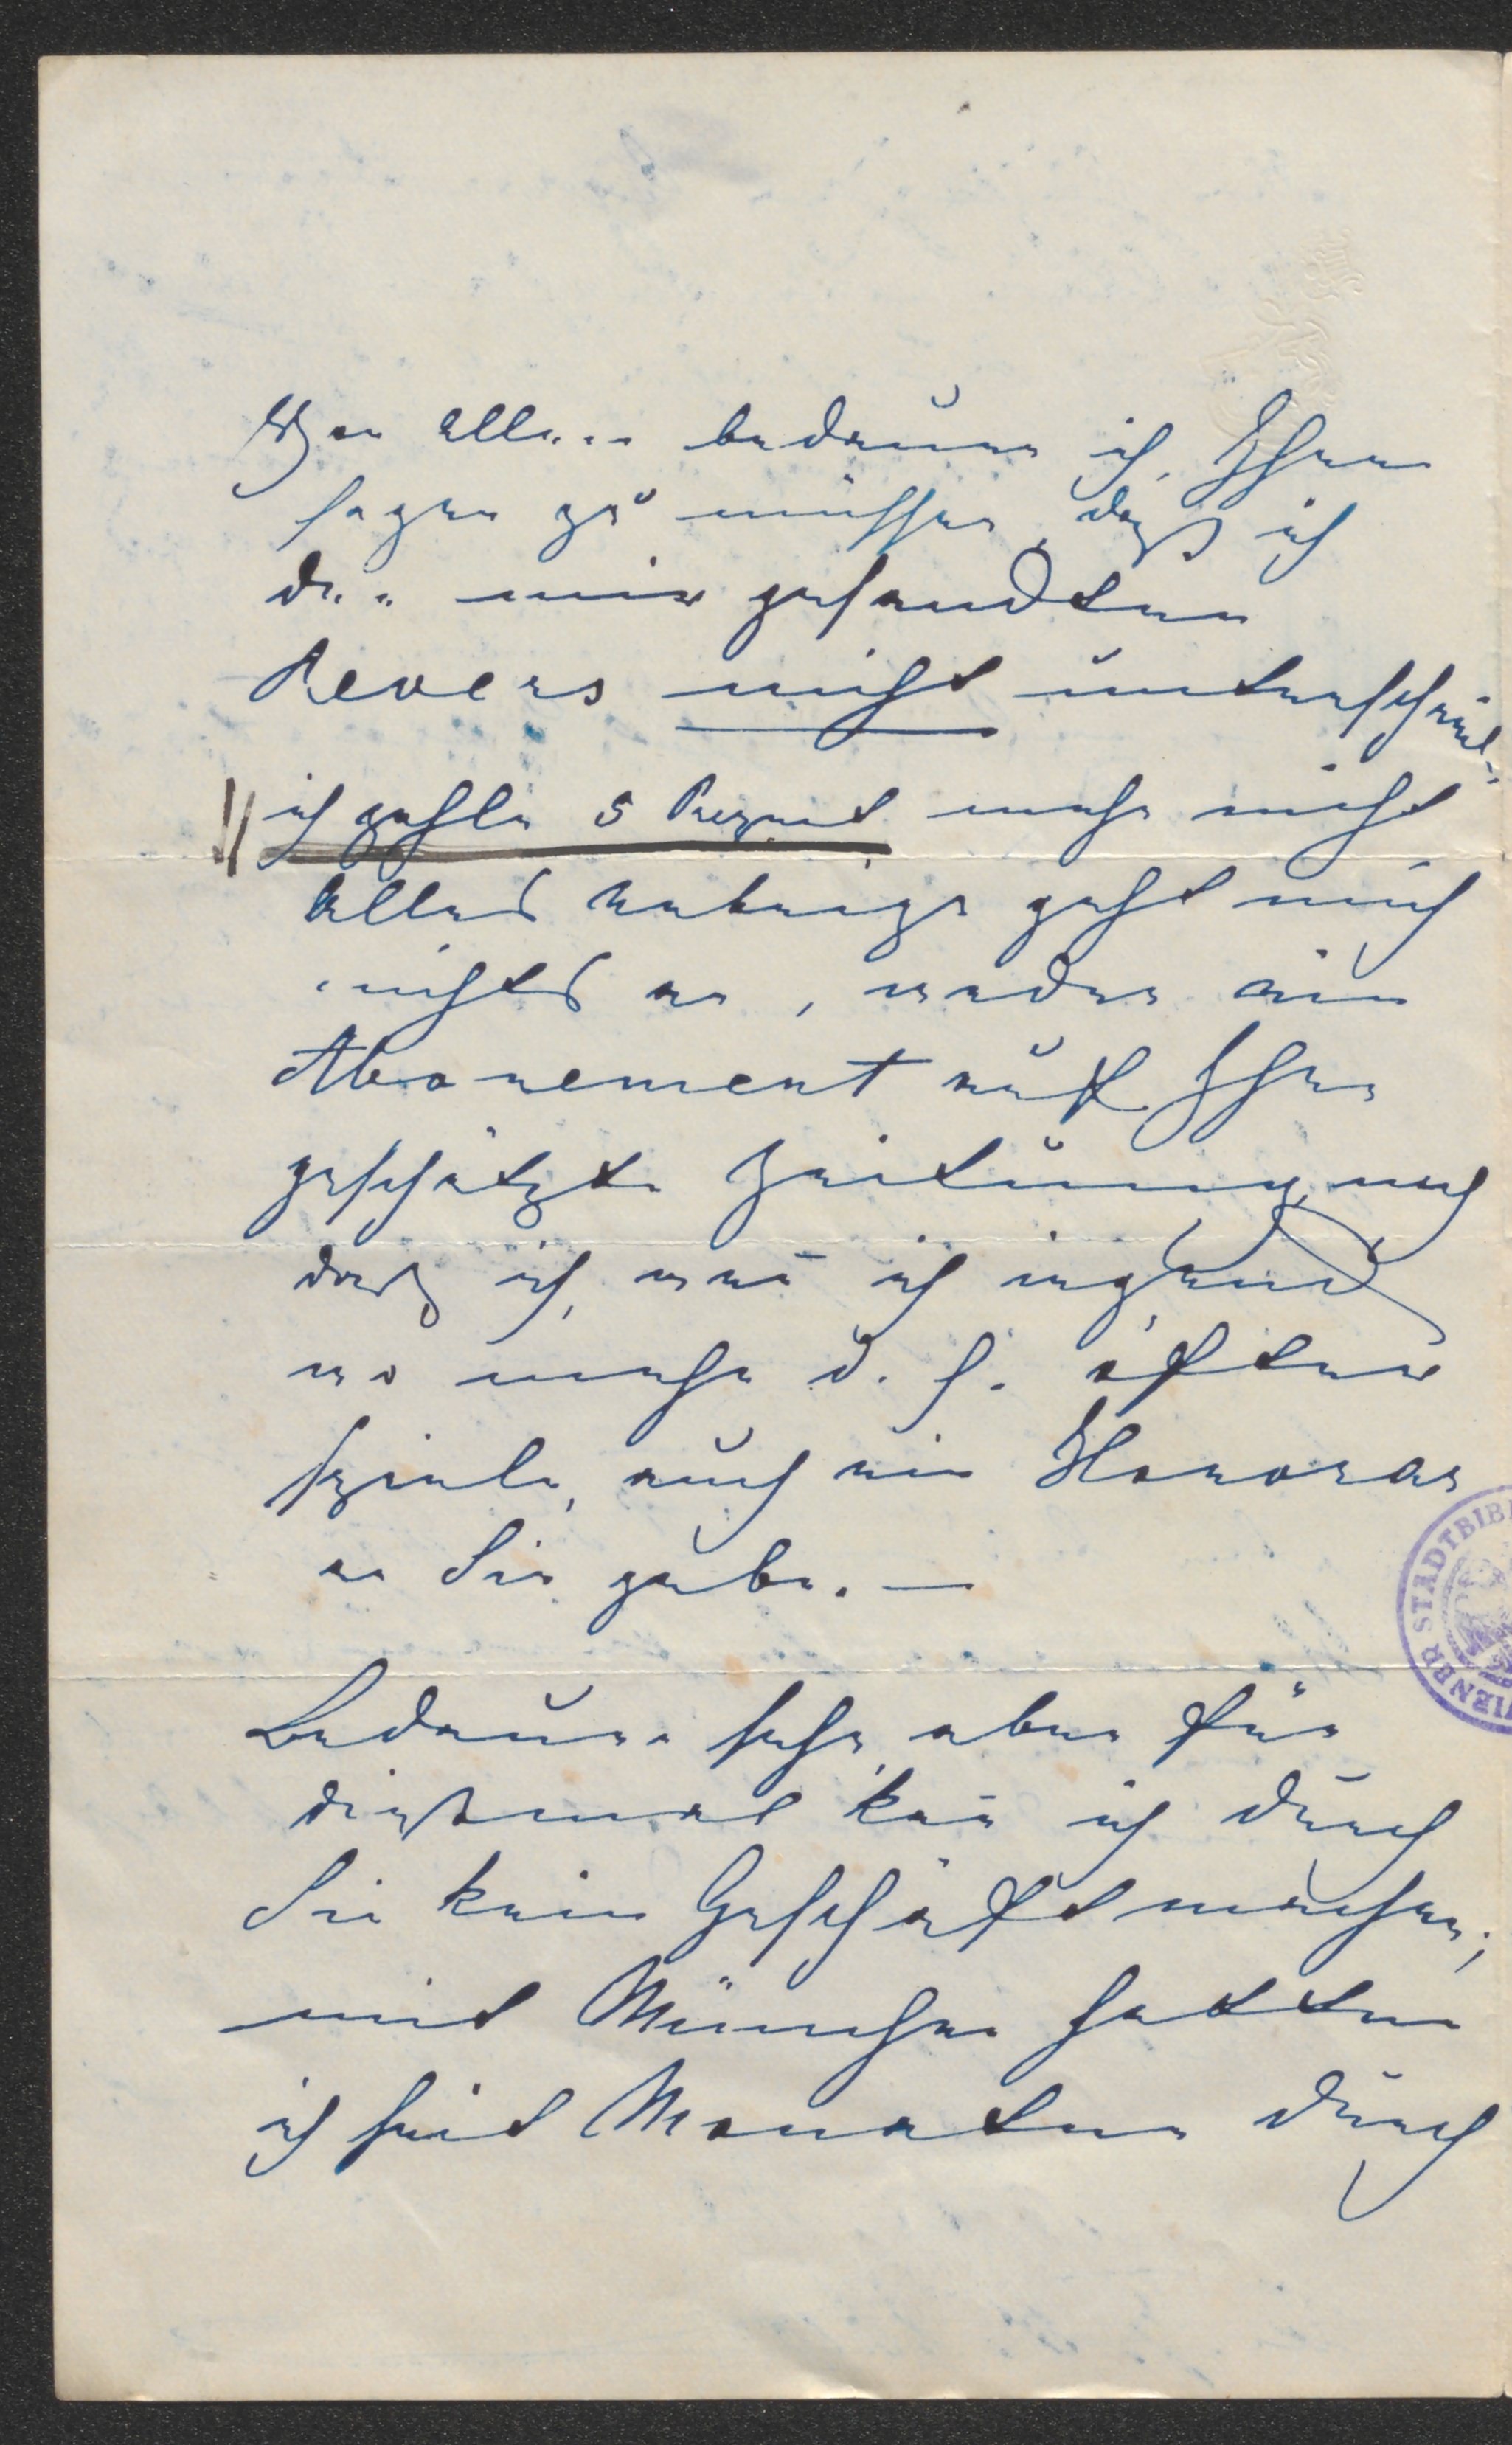 Vor allem bedaure ich, Ihnen
sagen zu müssen, daß ich
den mir gesandten
Revers nicht unterschreibe,
ich zahle 5 Prozent mehr nicht
alles uebrige geht mich
nichts an, weder ein
Abonement auf Ihre
geschätzte Zeitung, noch
daß ich, wen̄ ich irgend
wo mehr d. h. öfter
spiele, auch ein Honorar
an Sie gebe. —
Bedaure sehr, aber für
diesmal kan̄ ich durch
Sie kein Geschäft machen;
mit München hatte
ich seit Monaten durch
WIENER STADTBIB